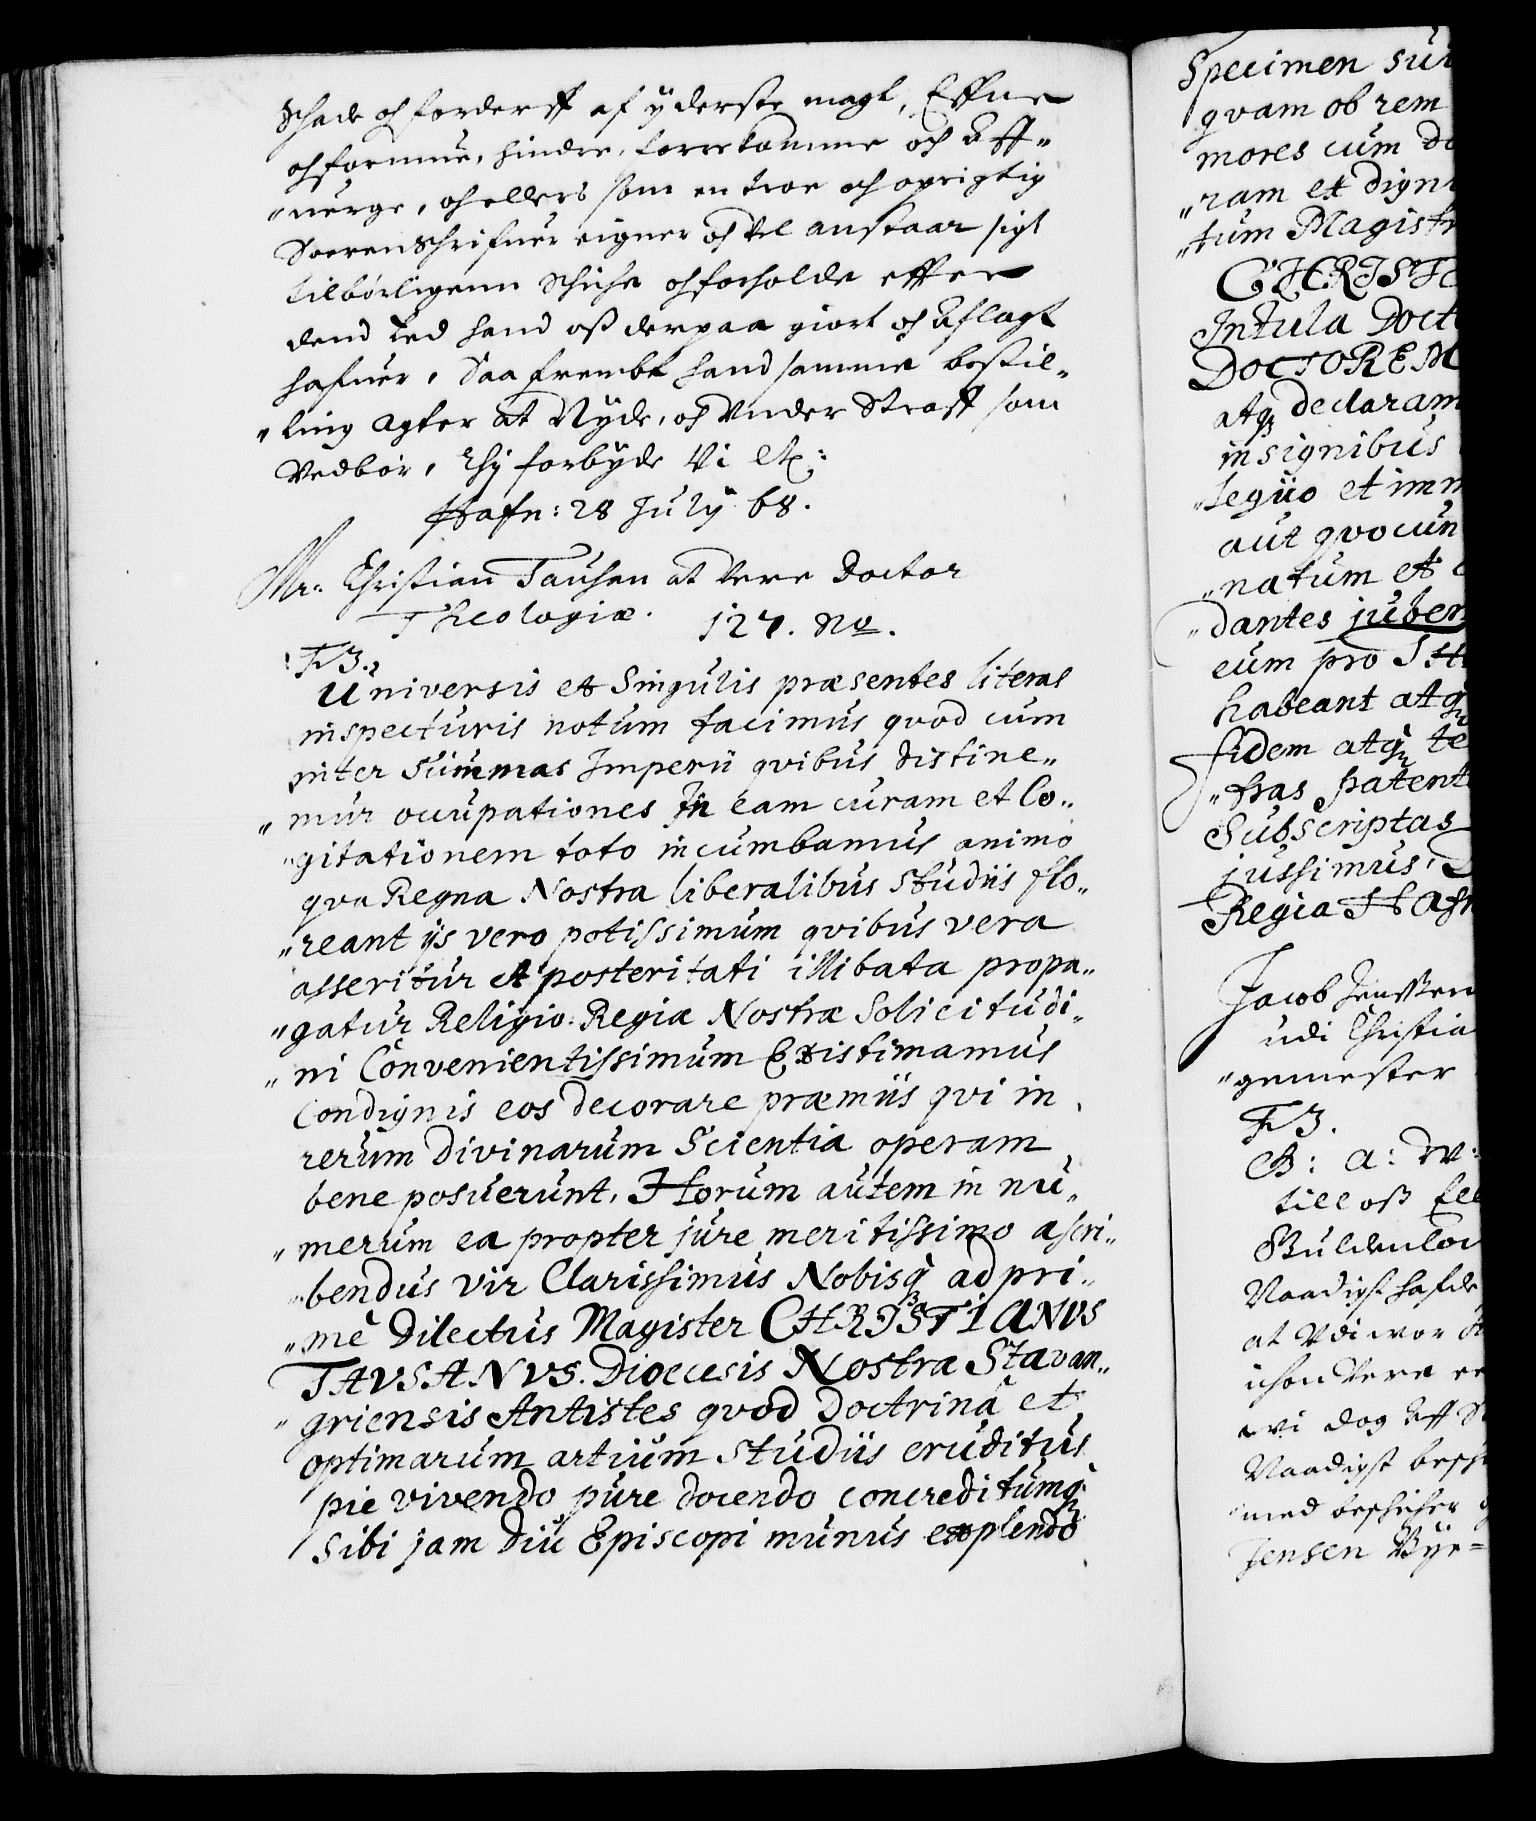 Schade och forderff af yderste magt, Effne
och formue, hindre, forrekomme och Aff„
„uerge, och ellers som en troe och oprigtig
Sorenschrifuer eigner och vel anstaar sigt
tilbörligenn schiche och forholde effter
dend Eed hand oss derpaa giort och Aflagt
hafuer, Saa frembt hand samme bestil„
„ling agter at Nyde, och under Straff som
Vedbör, Thj forbyde Vi etc:
Hafn: 28 July 68.
Mr: Christian Tausan at Vere Doctor
Theologiæ. 127. No.
F3.
Universis et Singulis præsentes literas
inspecturis notum facimus qvod cum
inter Summas Imperii qvibus distine„
„mur occupationes In eam curam et Co„
„gitationem toto incumbamus animo
qva Regna Nostra liberalibus Studiis flo„
„reant ijs vero potissimum qvibus vera
asseritur et posteritati illibata propa„
„gatur Religio: Regiæ Nostræ Solicitudi„
„ni Convenientissimum Existimamus
Condignis eos decorare præmiis qvi in
rerum Divinarum Scientia operam
bene posuerunt, Horum autem in nu„
„merum ea propter jure meritissimo ascri„
„bendus vir Clarissimus Nobisq3 ad pri„
„mè Dilectus Magister CHRISTIANVS
TAVSANVS. Dioecesis Nostræ Stavan„
„griensis Antistes qvod Doctrinâ et
optimarum artium Studiis eruditus
pie vivendo pure docendo concreditumq3
Sibi jam diu Episcopi munus explendo
Specimen sui
qvam ob rem
mores cum do
„ram et digni
„tum Magistr
CHRISTI
Intula Doct
DOCTOREM
atq3 declaram
insignibus
„legiio et imm
aut qvocun
„natum et
„dantes juben
eum pro
habeant atq3
fidem atq3 te
„tras patent
Subscriptas
jussimus,
Regia Hafn
Jacob Jenssen
udi Christia
„gemester
F3.
G: a: W:
till oss Ell
Guldenlöu
Naadigst hafde
at Vdi wor
ichon Vere
wi dog Aff
Naadigst besch
med beschicher
Jensen Bye=